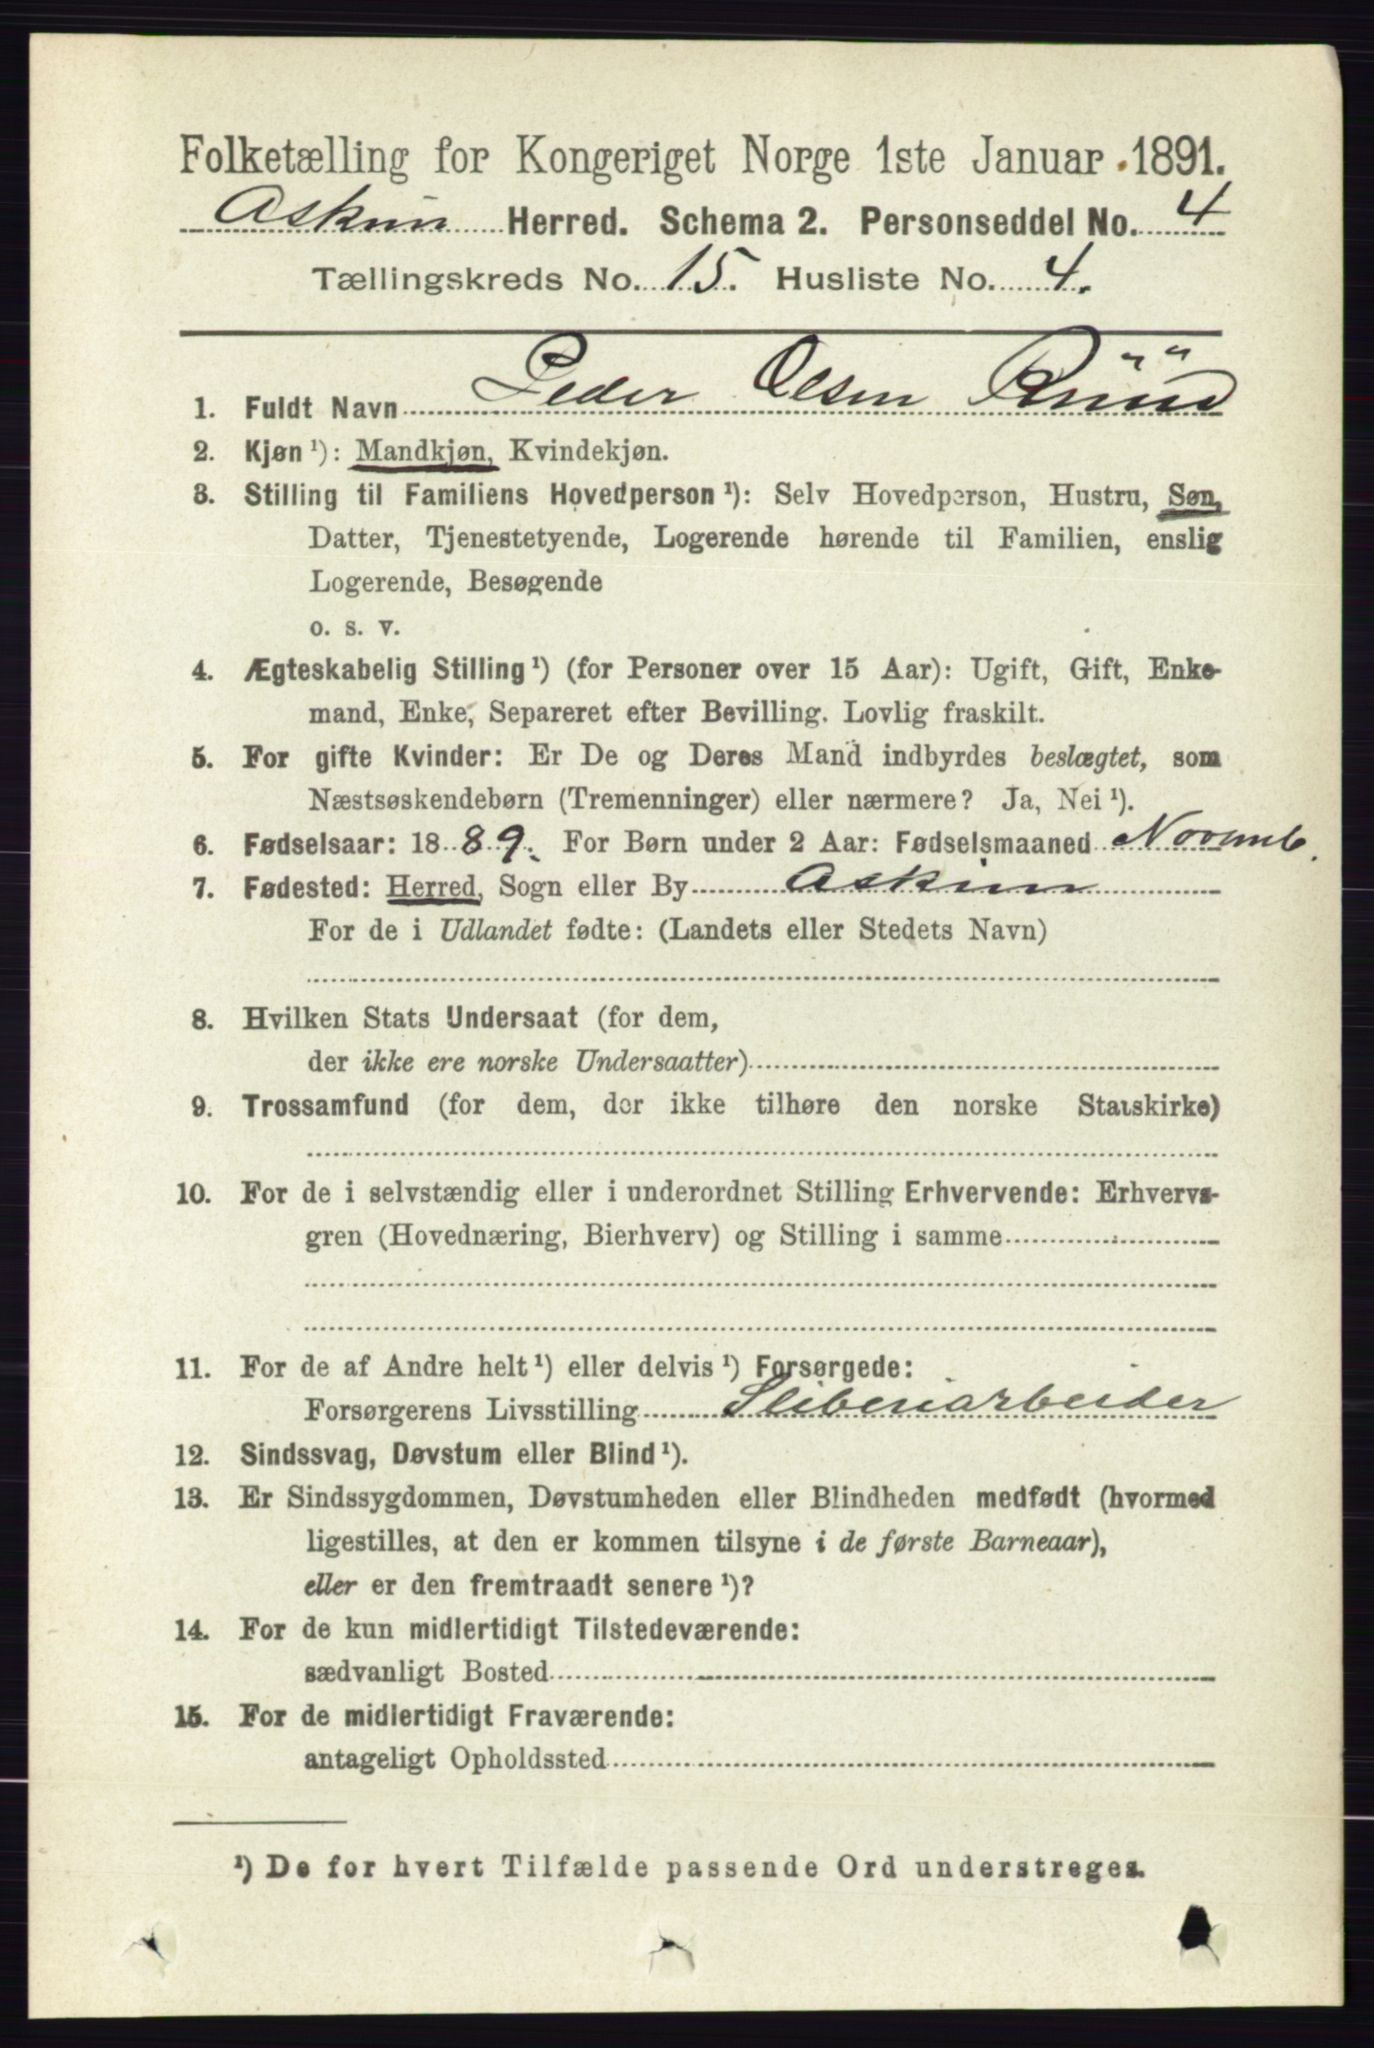 Folketælling for Kongeriget Norge 1ste Januar 1891.
Askim Herred. Schema 2. Personseddel No. 4
Tællingskreds No. 15. Husliste No. 4.
1. Fuldt Navn Peder Olsen
2. Kjøn ¹): Mandkjøn, Kvindekjøn.
3. Stilling til Familiens Hovedperson ¹): Selv Hovedperson, Hustru, Søn,
Datter, Tjenestetyende, Logerende hørende til Familien, enslig
Logerende, Besøgende
o. s. v.
4. Ægteskabelig Stilling ¹) (for Personer over 15 Aar): Ugift, Gift, Enke-
mand, Enke, Separeret efter Bevilling. Lovlig fraskilt.
5. For gifte Kvinder: Er De og Deres Mand indbyrdes beslægtet, som
Næstsøskendebørn (Tremenninger) eller nærmere? Ja, Nei ¹).
6. Fødselsaar: 1889. For Børn under 2 Aar: Fødselsmaaned Novemb.
7. Fødested: Herred, Sogn eller By Askim
For de i Udlandet fødte: (Landets eller Stedets Navn)
8. Hvilken Stats Undersaat (for dem,
der ikke ere norske Undersaatter)
9. Trossamfund (for dem, der ikke tilhøre den norske Statskirke)
10. For de i selvstændig eller i underordnet Stilling Erhvervende: Erhvervs-
gren (Hovednæring, Bierhverv) og Stilling i samme
11. For de af Andre helt ¹) eller delvis ¹) Forsørgede:
Forsørgerens Livsstilling Sliberiarbeider
12. Sindssvag, Døvstum eller Blind ¹).
13. Er Sindssygdommen, Døvstumheden eller Blindheden medfødt (hvormed
ligestilles, at den er kommen tilsyne i de første Barneaar),
eller er den fremtraadt senere ¹)?
14. For de kun midlertidigt Tilstedeværende:
sædvanligt Bosted
15. For de midlertidigt Fraværende:
antageligt Opholdssted
¹) De for hvert Tilfælde passende Ord understreges.